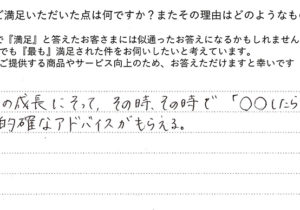 ご満足いただいた点は何ですか？またその理由はどのようなもの
で『満足』と答えたお客さまには似通ったお答えになるかもしれません
でも『最も』満足された件をお伺いしたいと考えています。
ご提供する商品やサービス向上のため、お答えただけますと幸いです
の成長にそって、その時、その時で「○○したら
的確なアドバイスがもらえる。